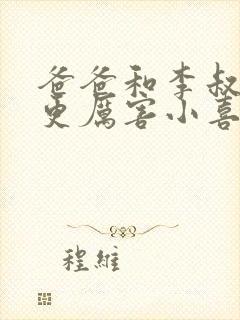 爸爸和李叔
更厲害小喜
程維